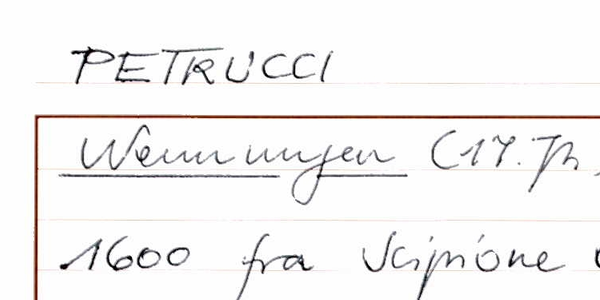 PETRUCCI
Wenningen (17. Jh.
1600 fra Scipione